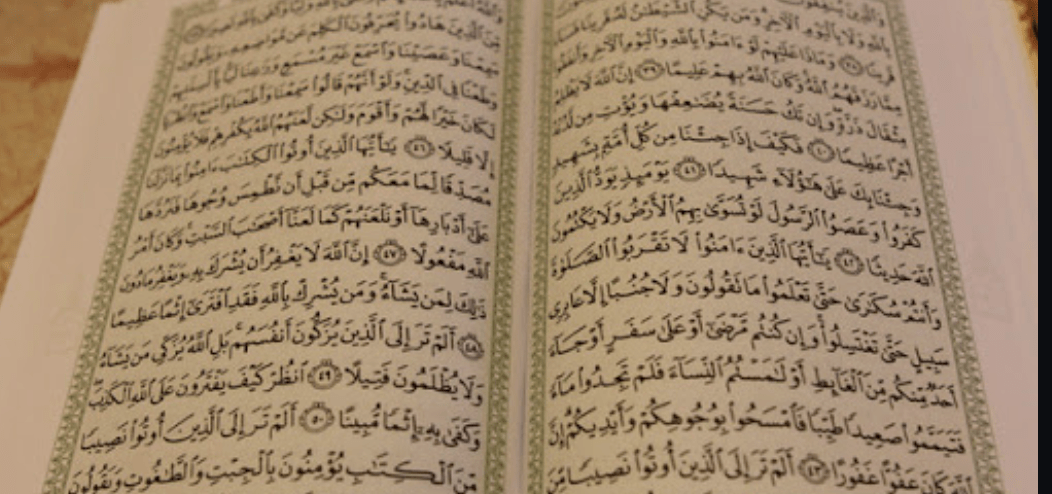 وَٱلَّذِينَ يُنفِقُونَ
بِٱللَّهِ وَلَا بِٱلْيَوْمِ ٱلْآخِرِ وَمَن يَكُنِ ٱلشَّيْطَٰنُ لَهُۥ قَرِينًا فَسَآءَ
قَرِينًا ٣٨ وَمَاذَا عَلَيْهِمْ لَوْ ءَامَنُوا۟ بِٱللَّهِ وَٱلْيَوْمِ ٱلْآخِرِ وَأَنفَقُوا۟
مِمَّا رَزَقَهُمُ ٱللَّهُ وَكَانَ ٱللَّهُ بِهِمْ عَلِيمًا ٣٩ إِنَّ ٱللَّهَ لَا يَظْلِمُ
مِثْقَالَ ذَرَّةٍ وَإِن تَكُ حَسَنَةً يُضَٰعِفْهَا وَيُؤْتِ مِن لَّدُنْهُ
أَجْرًا عَظِيمًا ٤٠ فَكَيْفَ إِذَا جِئْنَا مِن كُلِّ أُمَّةٍۭ بِشَهِيدٍ
وَجِئْنَا بِكَ عَلَىٰ هَٰٓؤُلَآءِ شَهِيدًا ٤١ يَوْمَئِذٍ يَوَدُّ ٱلَّذِينَ
كَفَرُوا۟ وَعَصَوُا۟ ٱلرَّسُولَ لَوْ تُسَوَّىٰ بِهِمُ ٱلْأَرْضُ وَلَا يَكْتُمُونَ
ٱللَّهَ حَدِيثًا ٤٢ يَٰٓأَيُّهَا ٱلَّذِينَ ءَامَنُوا۟ لَا تَقْرَبُوا۟ ٱلصَّلَوٰةَ
وَأَنتُمْ سُكَٰرَىٰ حَتَّىٰ تَعْلَمُوا۟ مَا تَقُولُونَ وَلَا جُنُبًا إِلَّا عَابِرِى
سَبِيلٍ حَتَّىٰ تَغْتَسِلُوا۟ وَإِن كُنتُم مَّرْضَىٰٓ أَوْ عَلَىٰ سَفَرٍ أَوْ جَآءَ
أَحَدٌ مِّنكُم مِّنَ ٱلْغَآئِطِ أَوْ لَٰمَسْتُمُ ٱلنِّسَآءَ فَلَمْ تَجِدُوا۟ مَآءً
فَتَيَمَّمُوا۟ صَعِيدًا طَيِّبًا فَٱمْسَحُوا۟ بِوُجُوهِكُمْ وَأَيْدِيكُمْ إِنَّ
ٱللَّهَ كَانَ عَفُوًّا غَفُورًا ٤٣ أَلَمْ تَرَ إِلَى ٱلَّذِينَ أُوتُوا۟ نَصِيبًا مِّنَ
مِّنَ ٱلَّذِينَ هَادُوا۟ يُحَرِّفُونَ ٱلْكَلِمَ عَن مَّوَاضِعِهِۦ وَيَقُولُونَ
سَمِعْنَا وَعَصَيْنَا وَٱسْمَعْ غَيْرَ مُسْمَعٍ وَرَٰعِنَا لَيًّۢا بِأَلْسِنَتِهِمْ
وَطَعْنًا فِى ٱلدِّينِ وَلَوْ أَنَّهُمْ قَالُوا۟ سَمِعْنَا وَأَطَعْنَا وَٱسْمَعْ وَٱنظُرْنَا
لَكَانَ خَيْرًا لَّهُمْ وَأَقْوَمَ وَلَٰكِن لَّعَنَهُمُ ٱللَّهُ بِكُفْرِهِمْ فَلَا يُؤْمِنُونَ
إِلَّا قَلِيلًا ٤٦ يَٰٓأَيُّهَا ٱلَّذِينَ أُوتُوا۟ ٱلْكِتَٰبَ ءَامِنُوا۟ بِمَا نَزَّلْنَا
مُصَدِّقًا لِّمَا مَعَكُم مِّن قَبْلِ أَن نَّطْمِسَ وُجُوهًا فَنَرُدَّهَا
عَلَىٰٓ أَدْبَارِهَآ أَوْ نَلْعَنَهُمْ كَمَا لَعَنَّآ أَصْحَٰبَ ٱلسَّبْتِ وَكَانَ أَمْرُ
ٱللَّهِ مَفْعُولًا ٤٧ إِنَّ ٱللَّهَ لَا يَغْفِرُ أَن يُشْرَكَ بِهِۦ وَيَغْفِرُ مَا دُونَ
ذَٰلِكَ لِمَن يَشَآءُ وَمَن يُشْرِكْ بِٱللَّهِ فَقَدِ ٱفْتَرَىٰٓ إِثْمًا عَظِيمًا
٤٨ أَلَمْ تَرَ إِلَى ٱلَّذِينَ يُزَكُّونَ أَنفُسَهُم بَلِ ٱللَّهُ يُزَكِّى مَن يَشَآءُ
وَلَا يُظْلَمُونَ فَتِيلًا ٤٩ ٱنظُرْ كَيْفَ يَفْتَرُونَ عَلَى ٱللَّهِ ٱلْكَذِبَ
وَكَفَىٰ بِهِۦٓ إِثْمًا مُّبِينًا ٥٠ أَلَمْ تَرَ إِلَى ٱلَّذِينَ أُوتُوا۟ نَصِيبًا
مِّنَ ٱلْكِتَٰبِ يُؤْمِنُونَ بِٱلْجِبْتِ وَٱلطَّٰغُوتِ وَيَقُولُونَ